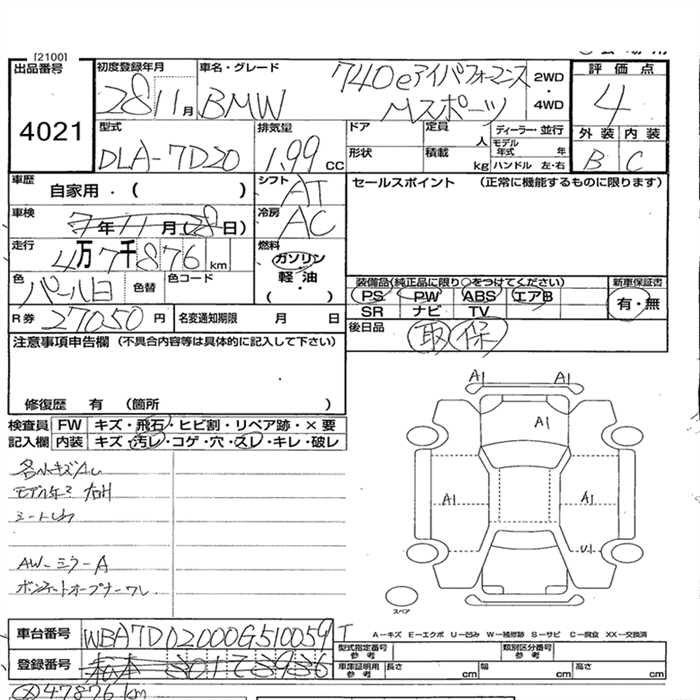 [2100]
出品番号
4021
初度登録年月
28 11 月
車名・グレード
BMW
740e アイパフォーマンス
Mスポーツ
2WD
・
4WD
評価点
4
外装 内装
B C
型式
DLA-7D20
排気量
1.99 CC
ドア
定員
人
形状
積載
kg
ディーラー・並行
モデル年式 年
ハンドル 左・右
車歴
自家用・( )
シフト
AT
セールスポイント (正常に機能するものに限ります)
車検
7年11月(28日)
冷房
AC
走行
4万7千876 km
燃料
ガソリン
軽油
( )
色
パール白
色替
色コード
装備品(純正品に限り○をつけてください)
新車保証書
PS PW ABS エアB
SR ナビ TV
有・無
R券
27050 円
名変通知期限 月 日
後日品
取 保
注意事項申告欄 (不具合内容等は具体的に記入して下さい)
修復歴 有 (箇所 )
検査員
記入欄
FW キズ・飛石・ヒビ割・リペア跡・×要
内装 キズ・汚レ・コゲ・穴・スレ・キレ・破レ
各小キズAU
モデル年ミ 右H
シートしわ
AW-ミラーA
ボンネットオープナーワレ
A1 A1
A1
A1 A1
U1
スペア
A-キズ E-エクボ U-凹み W-補修跡 S-サビ C-腐食 XX-交換済
車台番号
WBA7D02000G510059
T
登録番号
型式指定番号
参考
類別区分番号
参考
車庫証明用
参考
長さ cm
幅 cm
高さ cm
47876 km